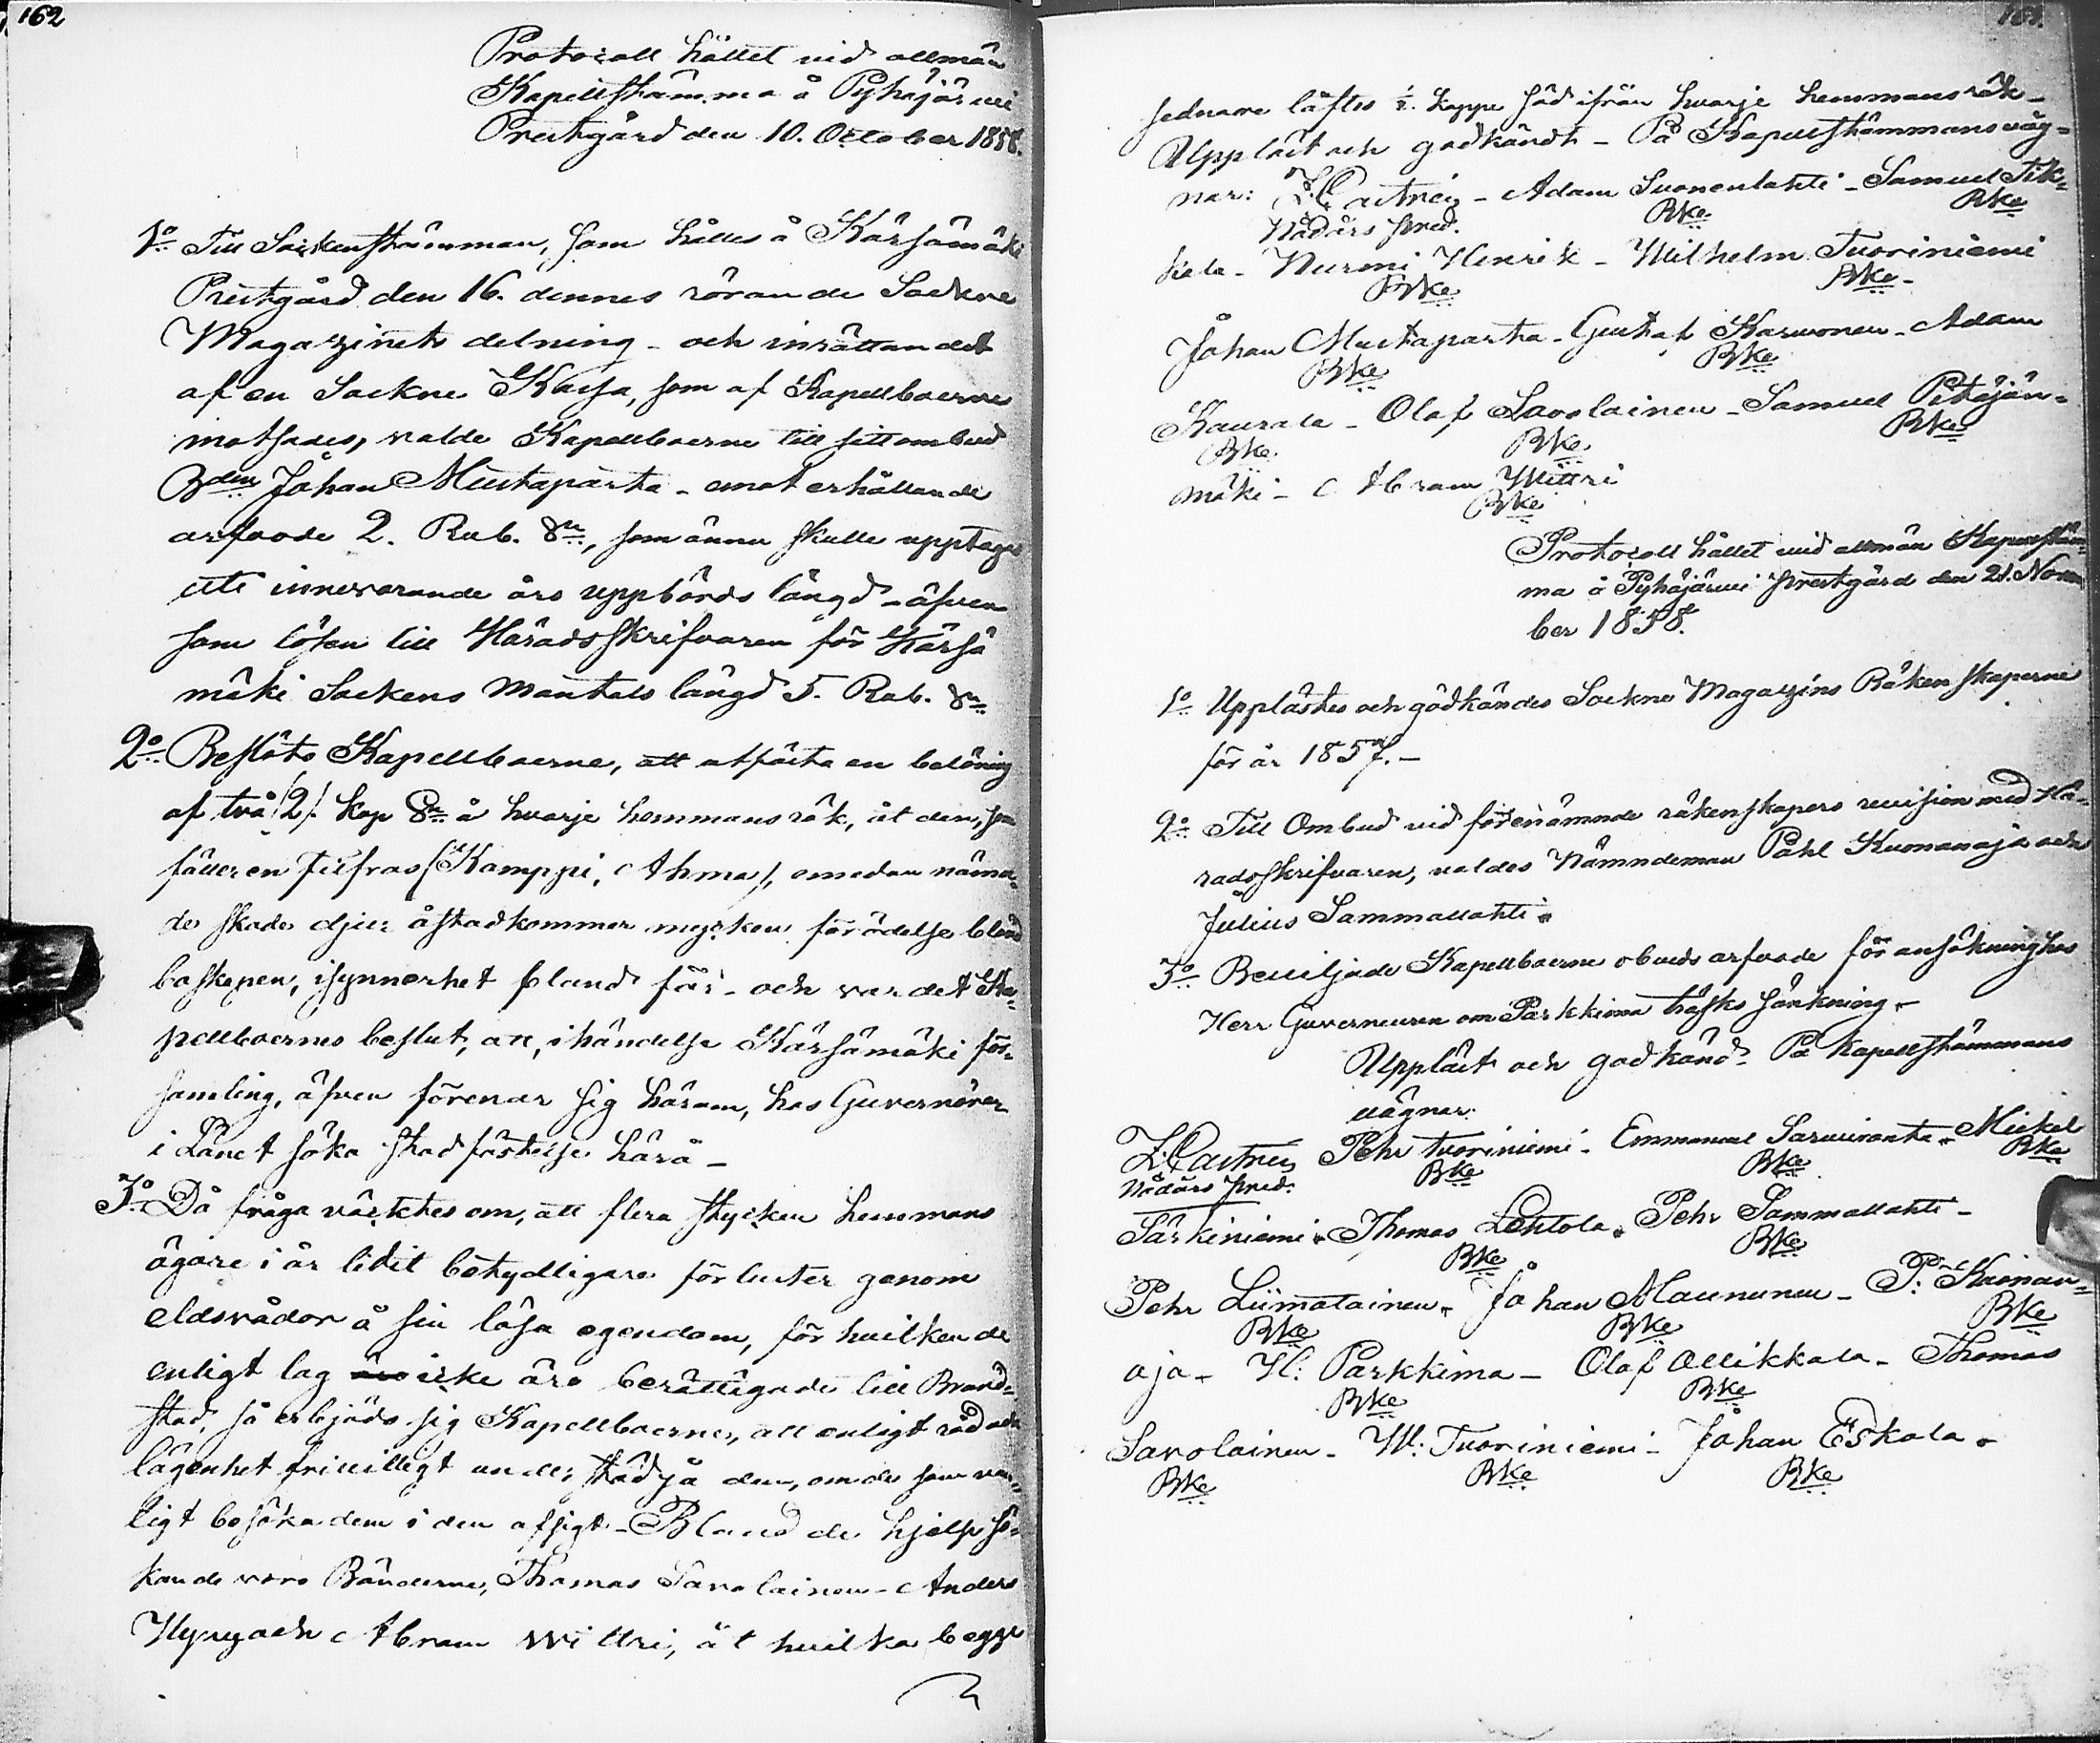 162
Protocoll hållet vid allmän
Kapellstämma å Pyhäjärvi
Prestgård den 10. October 1858.
1o Till Sockenstämman, som hålles å Kärsämäki
Prestgård den 16. dennes rörande Sockne
Magazinets delning - och inrättandet
af en Sockne Kassa, som af Kapellboerne
motsades, valde Kapellboerne till sitt ombud
Bden Johan Mustaparta - emot erhållande
arfvode 2. Rub. Sr, som ännu skulle upptagas
uti innevarande års uppbörds längd - äfven
som lösen till Häradsskrifvaren för Kärsä
mäki Sockens Mantals längd 5. Rub. Sr
2o Beslöto Kapellboerne, att utfästa en belöning
af två /2/. kap Sn å hvarje hemmans rök, åt den, som
fäller en Filfras /Kamppi, Ahma/, emedan nämn-
de skade djur åstadkommer mycken förödelse bland
boskapen, isynnerhet bland får - och var det Ka-
pellboernes beslut, att, ihändelse Kärsämäki för-
samling, äfven förenar sig härom, hos Guvernören
i Länet söka stadfästelse härå -
3o Då fråga väcktes om, att flera stycken hemmans
ägare i år lidit betydligare förluster genom
eldsvådor å sin lösa egendom, för hvilken de
enligt lag äro icke äro berättigade till Brand-
stod, så erbjödo sig Kapellboerne, att enligt råd och
lägenhet frivilligt understödja dem, om de som van-
ligt besöka dem i den afsigt - Bland de hjelpsö-
kande voro Bönderne, Thomas Savolainen - Anders
Hyry och Abram Wittri, åt hvilka begge
sednare löftes ½. kappe Säd ifrån hvarje hemmansrök -
Uppläst och godkändt - På Kapellstämmans väg-
nar: Z. Castrén - Adam Suonenlahti - Samuel Tik-
Nådårs pred. Bke Bke
kala - Nurmi Henrik - Wilhelm Tuoriniemi
Bke Bke -
Johan Mustaparta - Gustaf Karvonen - Adam
Bke Bke
Kaurala - Olof Savolainen - Samuel Pitäjän-
Bke Bke Bke
mäki - Abram Wittri
Bke
Protocoll hållet vid allmän Kapellstäm-
ma å Pyhäjärvi prestgård den 21. Novem
ber 1858.
1o Upplästes och godkändes Sockne Magazins Räkenskaperne
för år 1857. -
2o Till Ombud vid förenämnde räkenskapers revision med Hä-
radsskrifvaren, valdes Nämndeman Påhl Kuonanoja och
Julius Sammallahti.
3o Beviljade Kapellboerne arfvode för ansökning hos
Herr Guverneuren om Parkkima träsks sänkning -
Uppläst och godkänd - På Kapellstämmans
vägnar:
Z. Castrén Pehr Tuoriniemi - Emmanuel Sarviranta - Mickel
Nådårs pred. Bke Bke Bke
Särkiniemi - Thomas Lehtola - Pehr Sammallahti -
Bke Bke
Pehr Liimatainen - Johan Maununen - P. Kuonan-
Bke Bke Bke
oja - H: Parkkima - Olof Ollikkala - Thomas
Bke Bke
Savolainen - W: Tuoriniemi - Johan Eskola -
Bke Bke Bke